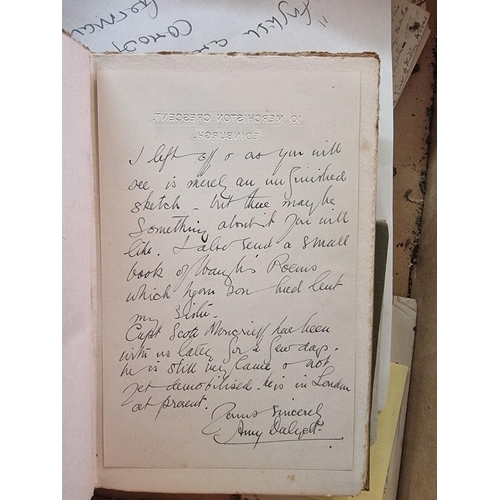 10, MERCHISTON CRESCENT,
EDINBURGH.
I left off & as you will
see, is merely an unfinished
sketch - but there may be
something about it you will
like. I also send a small
book of Waugh's Poems
which your son had lent
my sister.
Capt Scott Moncrieff has been
with us lately for a few days.
he is still very lame & not
yet demobilised - he is in London
at present.
Yours Sincerely
Amy Dalyell